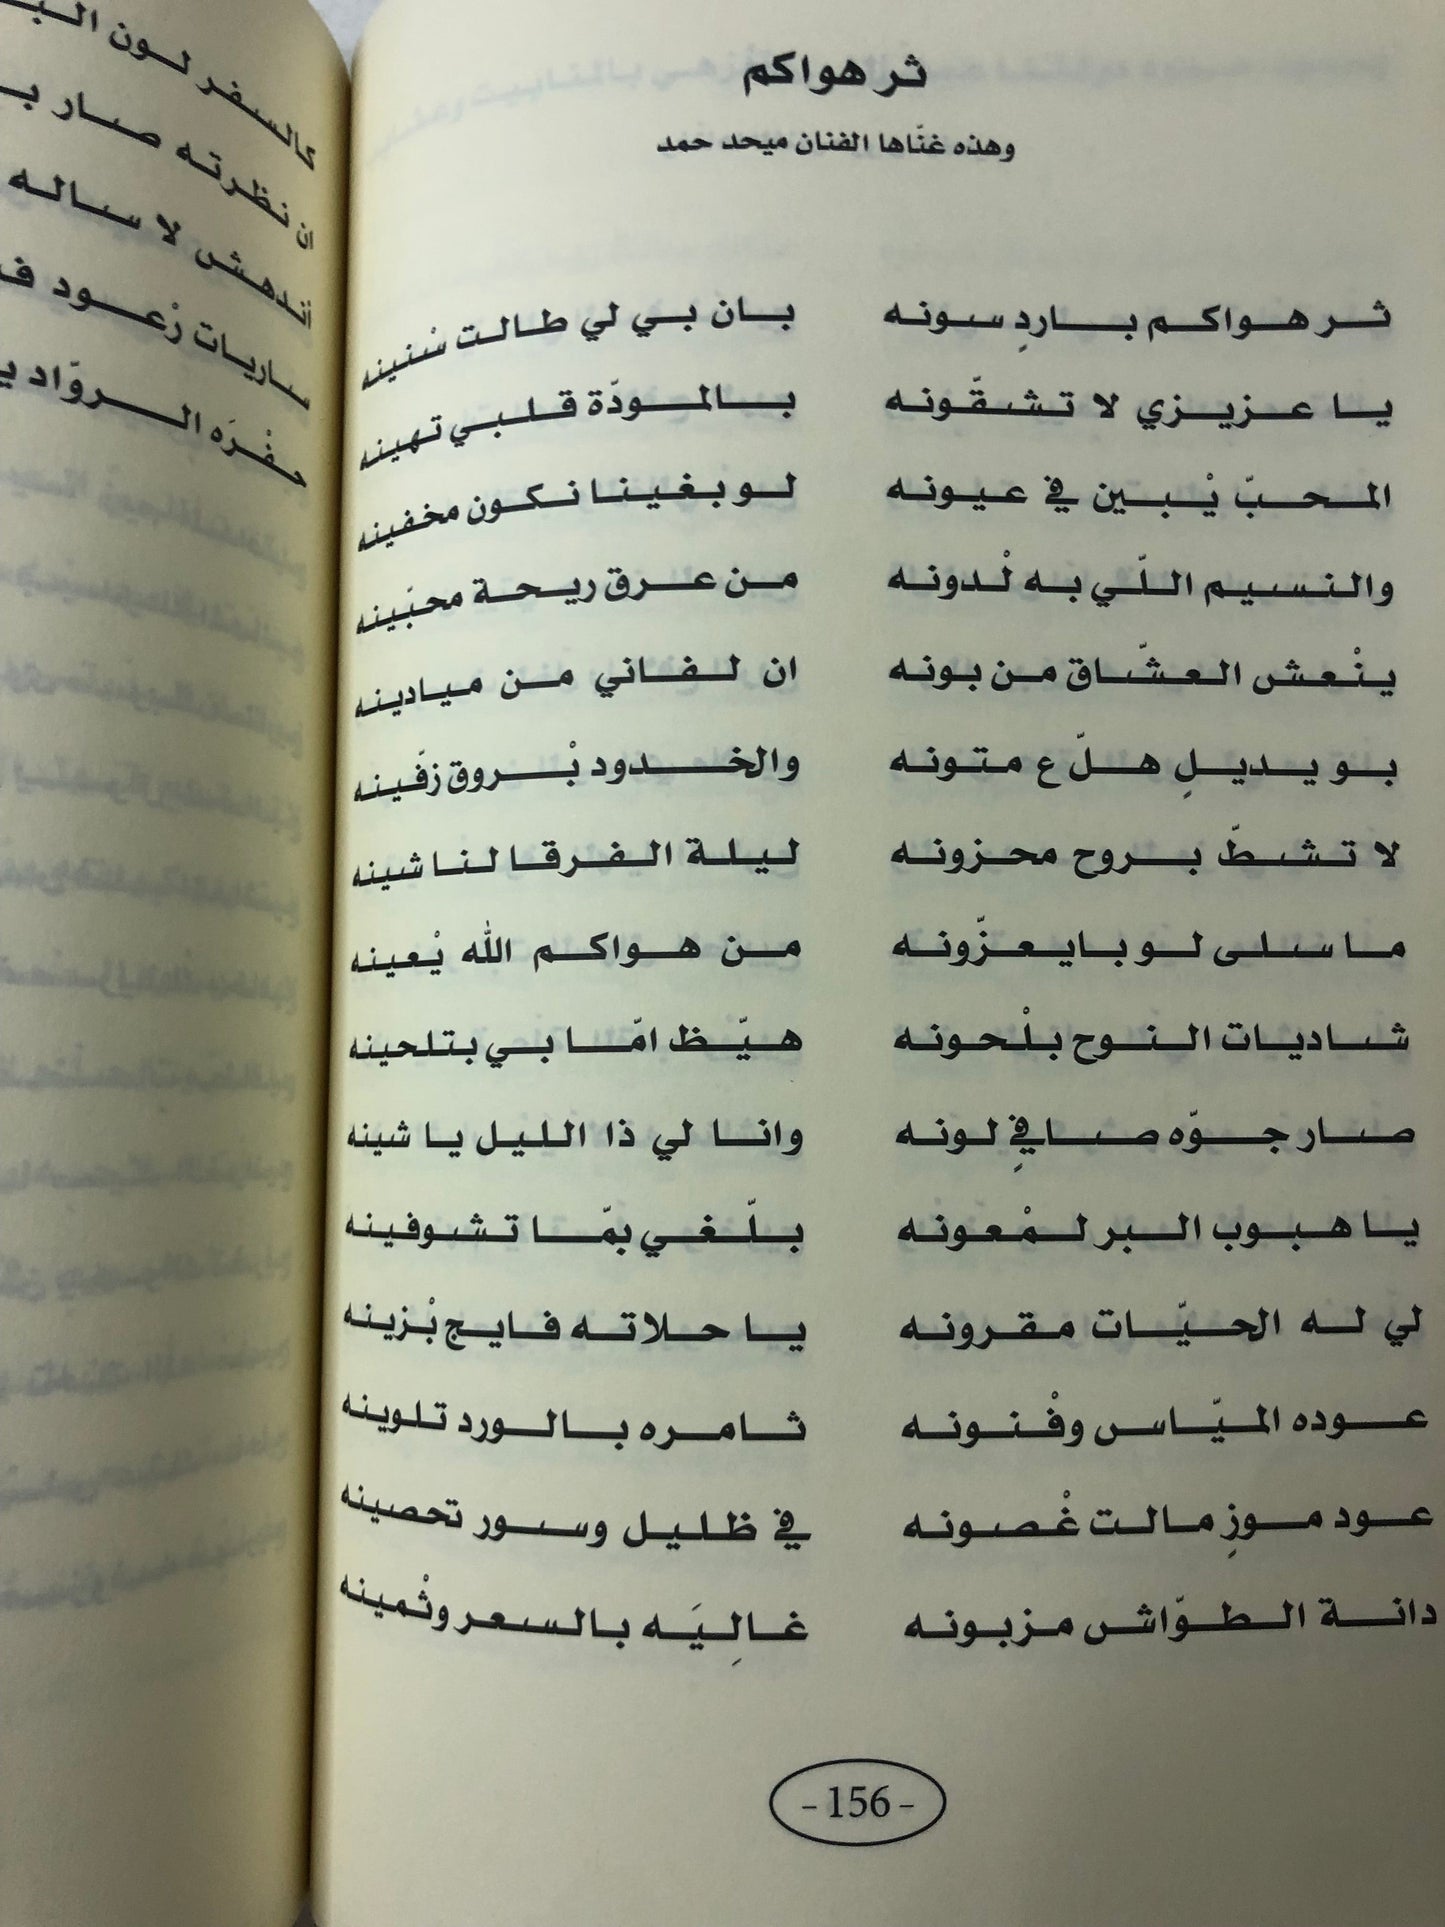 ثر هواكم
وهذه غنّاها الفنان ميحد حمد
ثر هواكم باردِ سونه بان بي لي طالت سْنينه
يا عزيزي لا تشقّونه بالمودّة قلبي تهينه
المحبّ يْبين في عيونه لو بغينا نكون مخفينه
والنسيم اللّي بَه لْدونه من عرق ريحة محبّينه
ينْعش العشّاق من بونه ان لفاني من ميادينه
بو يديلِ هلّ ع متونه والخدود بْروق زفّينه
لا تشطّ بروح محزونه ليلة الفرقا لنا شينه
ما سلى لو بايعزّونه من هواكم الله يْعينه
شاديات النوح بلْحونه هيّظ امّا بي بتلحينه
صار جوّه صافيِ لونه وانا لي ذا الليل يا شينه
يا هبوب البر لمْعونه بلّغي بمّا تشوفينه
لي له الحيّات مقرونه يا حلاته فايج بْزينه
عوده الميّاس وفْنونه ثامره بالورد تلوينه
عود موزِ مالت غْصونه في ظليل وسور تحصينه
دانة الطوّاش مزبونه غالِيَه بالسعر وثْمينه
-156-
كالسفر لون
ان نظرته صار
اندهش لا ساله
ساريات رْعود
حفْرَه الروّاد